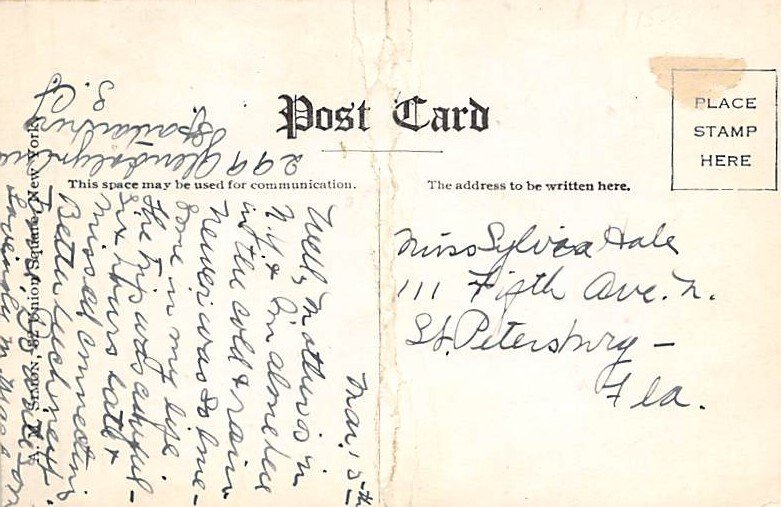 Post Card
PLACE
STAMP
HERE
This space may be used for communication.
The address to be written here.
Miss Sylvia Hale
111 Fifth Ave. N.
St. Petersburg —
Fla.
Mar. 15th
Well, Mother is in
N.Y. & I'm alone here
in the cold & rain
Never was so lone-
some in my life.
The trip was awful —
Six hours late &
Missed connecting
Better luck next
Lovingly
299
S. C.
Simon, 32 Union Square, New York